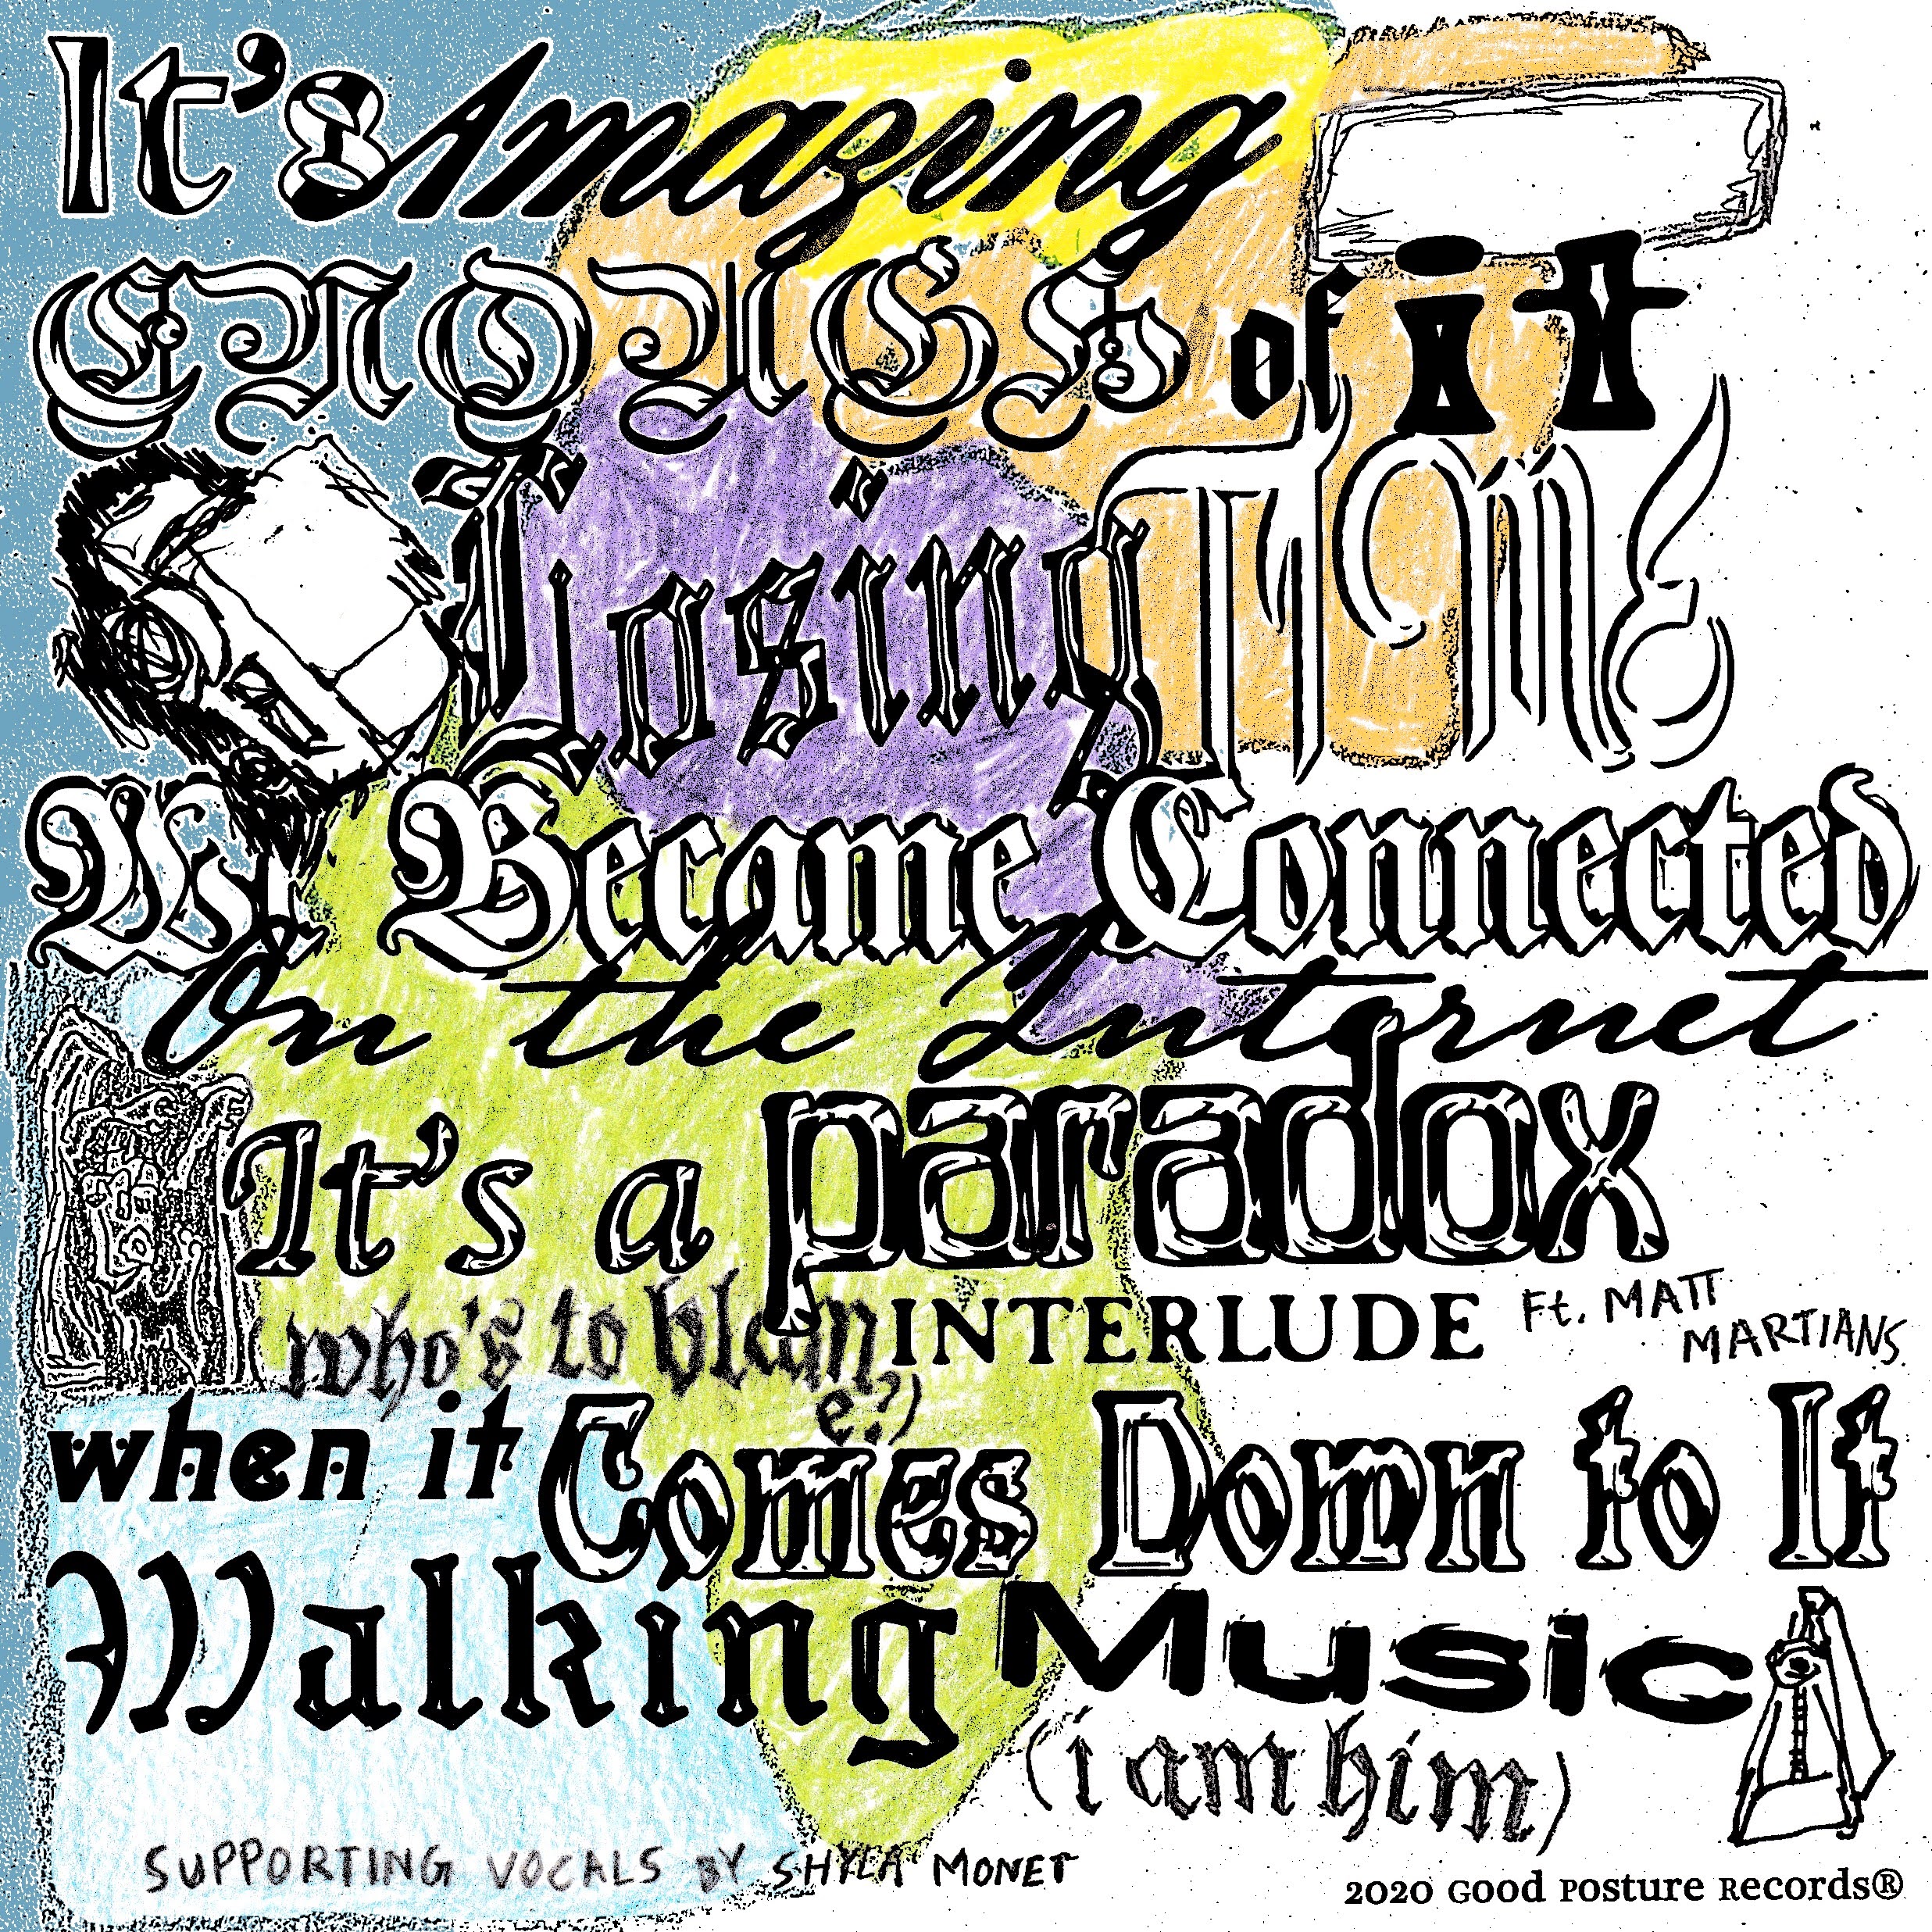 It's Amazing
ENOUGH of it
Losing TIME
We Became Connected
On the Internet
It's a paradox
(who's to blame?) INTERLUDE Ft. MATT MARTIANS
when it Comes Down to It
Walking Music
(i am him)
SUPPORTING VOCALS BY SHYLA MONET
2020 Good Posture Records®